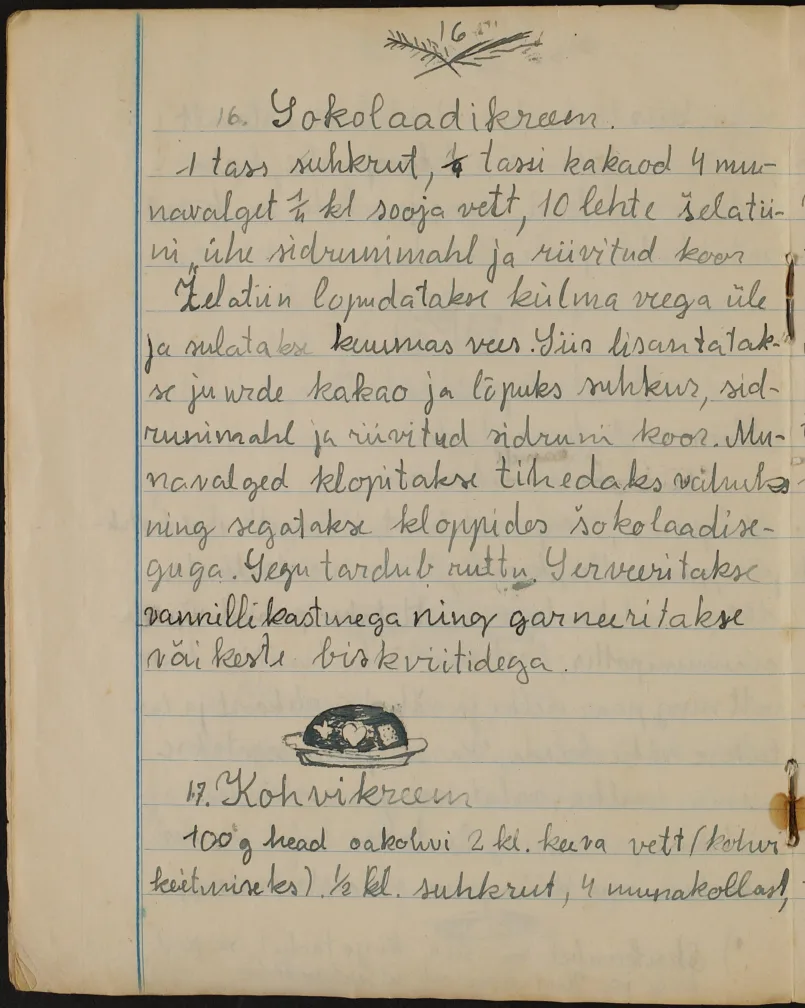 16
16. Šokolaadikreem.
1 tass suhkrut, ¼ tassi kakaod 4 mu-
navalget ¼ kl sooja vett, 10 lehte šelatii-
ni, ühe sidrunimahl ja riivitud koor
Želatiin lopudatakse külma veega üle
ja sulatakse kuumas vees. Siis lisantatak-
se juurde kakao ja lõpuks suhkur, sid-
runimahl ja riivitud sidruni koor. Mu-
navalged klopitakse tihedaks vahuks
ning segatakse kloppides šokolaadise-
guga. Segu tardub ruttu. Serveeritakse
vannillikastmega ning garneeritakse
väikeste biskviitidega.
17. Kohvikreem
100 g head oakohvi 2 kl. keeva vett (kohvi
keetmiseks). ½ kl. suhkrut, 4 munakollast,